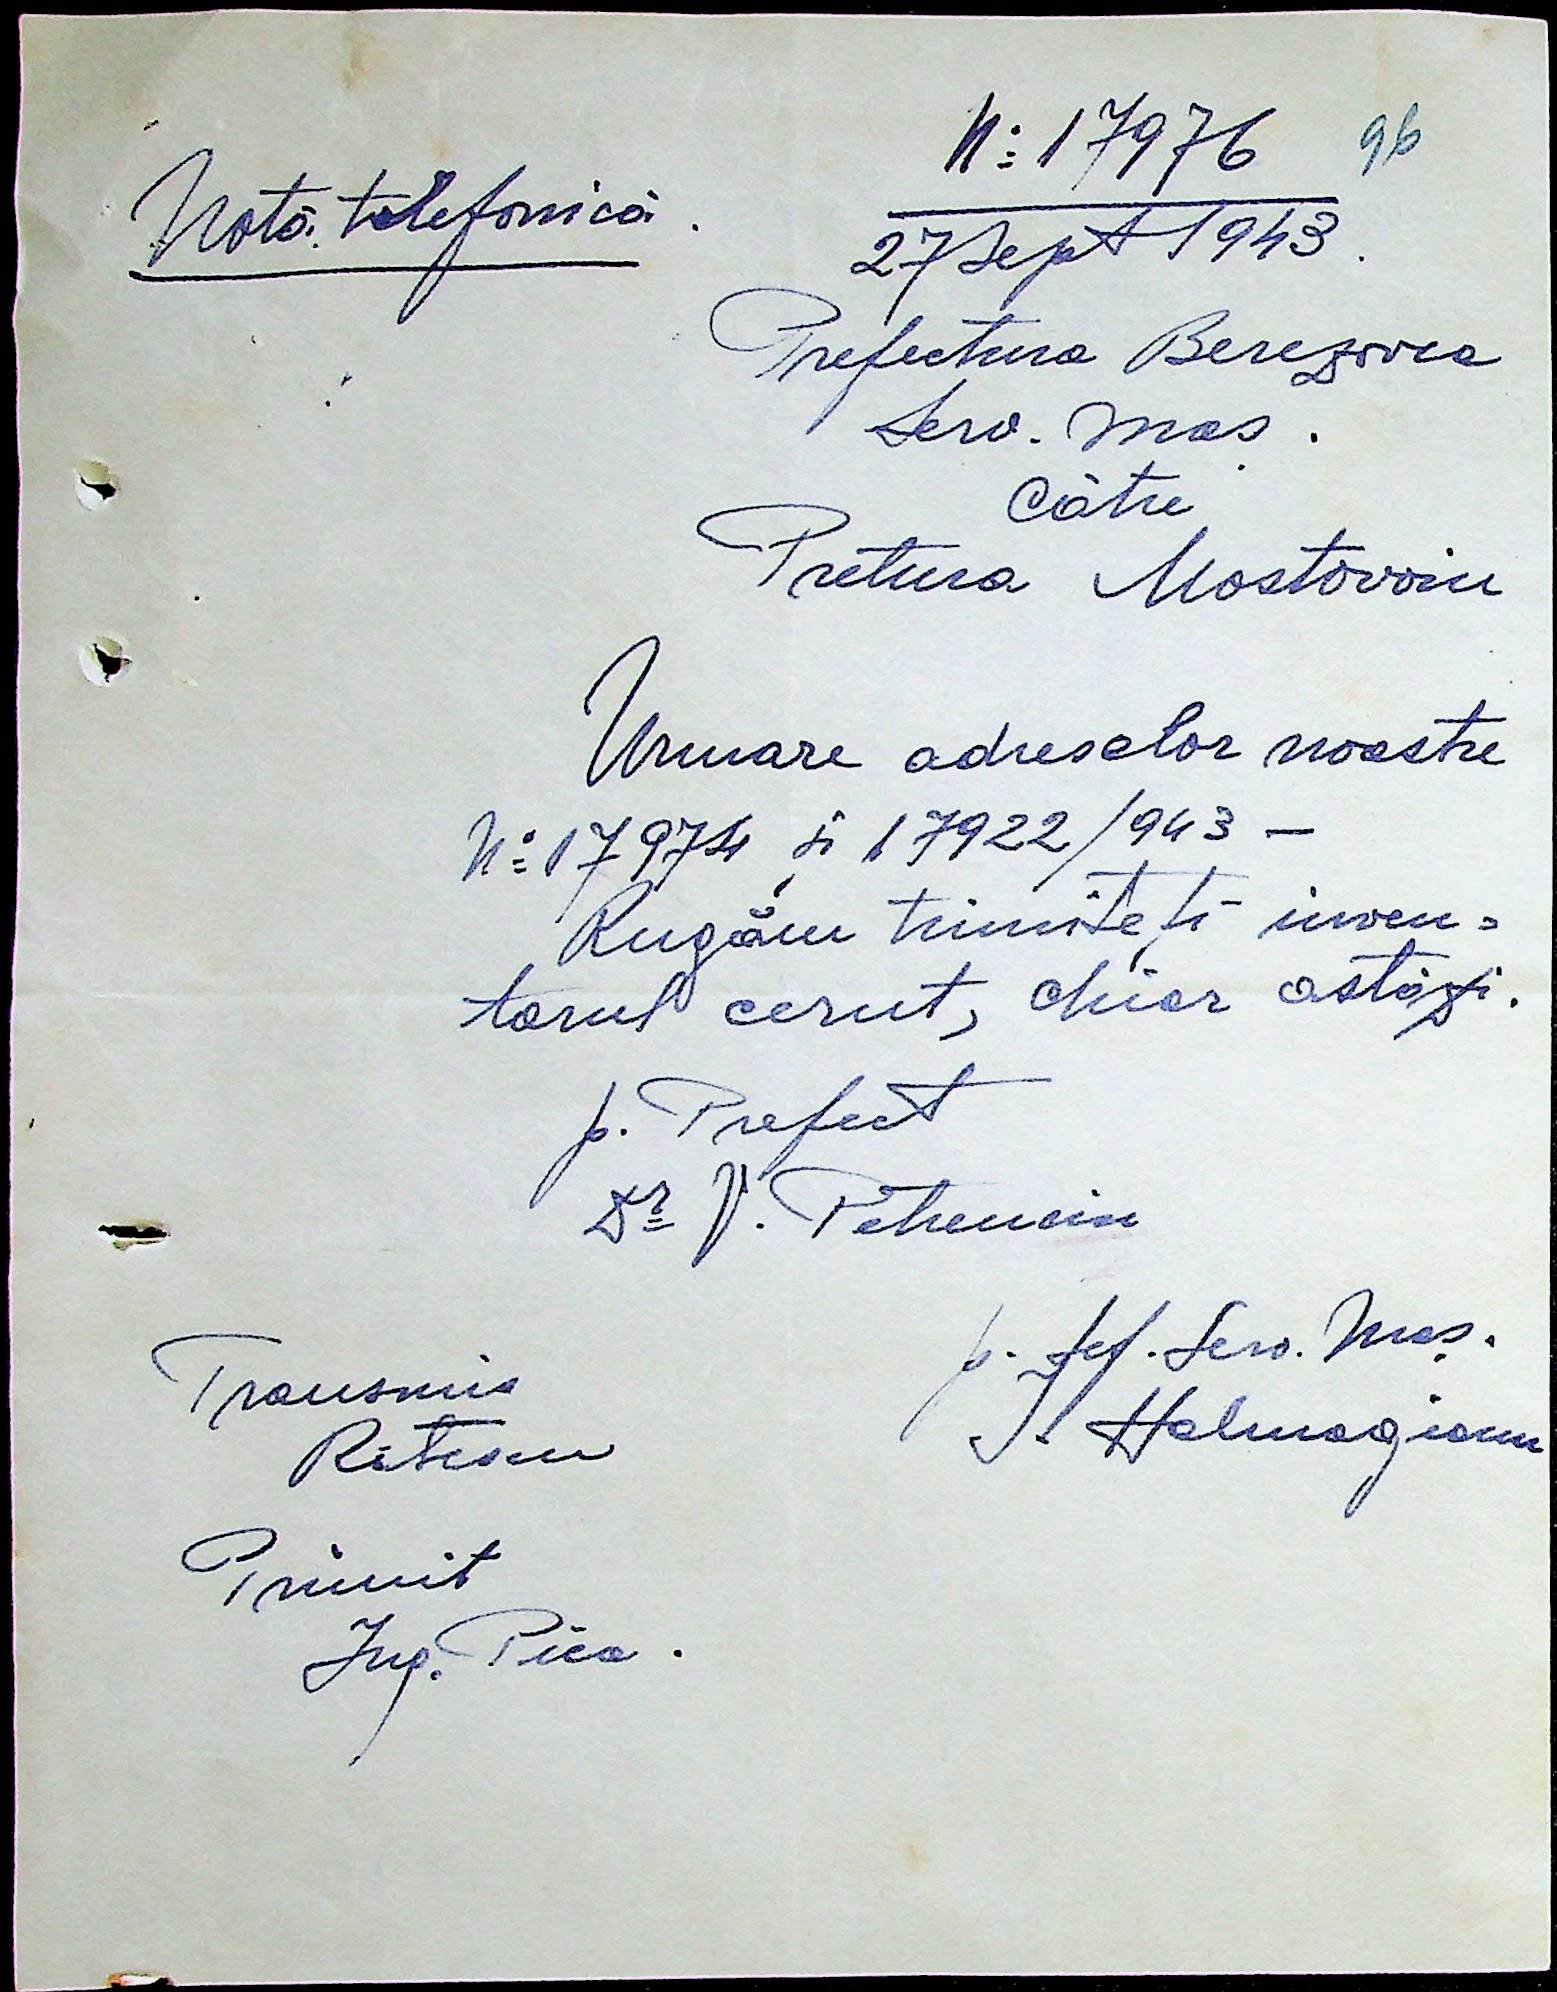 Notă telefonică.
No: 17976 96
27 Sept 1943.
Prefectura Berezovca
Serv. Maș.
Către
Pretura Mostovoiu
Urmare adreselor noastre
No: 17974 și 17922/943 –
Rugăm trimiteți inven=
tarul cerut, chiar astăzi.
p. Prefect
Dr V. Petrenciu
p. Șef. Serv. Maș.
I. Halmagianu
Transmis
Râteanu
Primit
Ing. Pica.